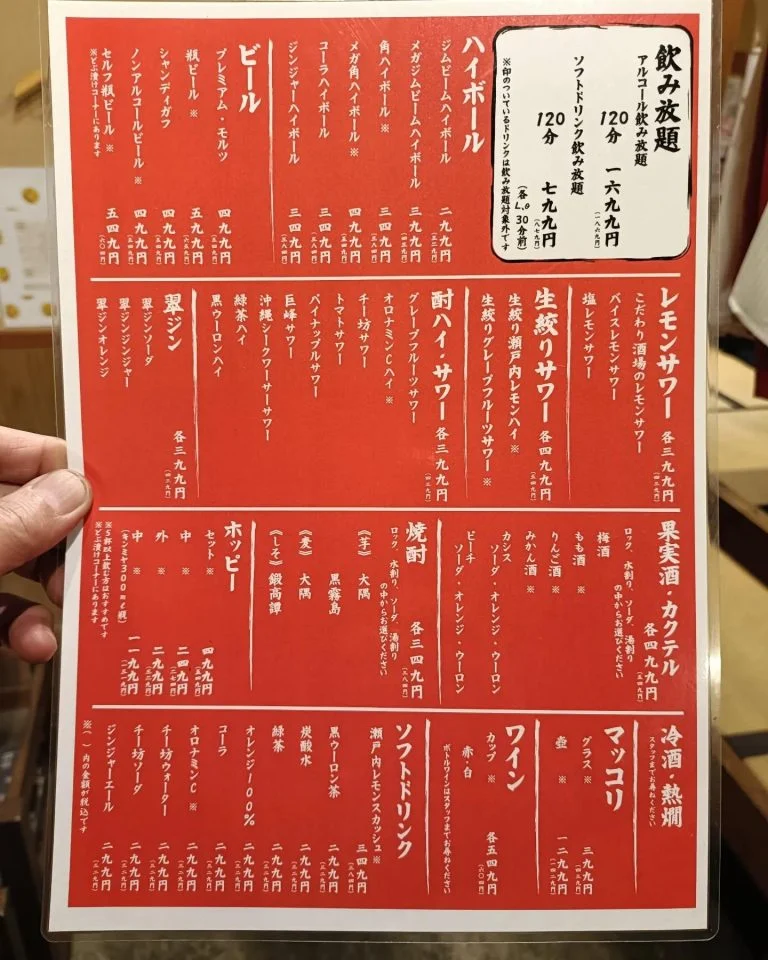 飲み放題
アルコール飲み放題
120分 一六九九円
(一八六九円)
ソフトドリンク飲み放題
120分 七九九円
(八七九円)
(各L.o 30分前)
※印のついているドリンクは飲み放題対象外です
ハイボール
ジムビームハイボール 二九九円
メガジムビームハイボール 三九九円
角ハイボール ※ 三四九円
メガ角ハイボール ※ 四九九円
コーラハイボール 三四九円
ジンジャーハイボール 三四九円
ビール
プレミアム・モルツ 四九九円
瓶ビール ※ 五九九円
シャンディガフ 四九九円
ノンアルコールビール ※ 四九九円
セルフ瓶ビール ※ 五四九円
(六〇四円)
※どぶ漬けコーナーにあります
レモンサワー 各三九九円
(四三九円)
こだわり酒場のレモンサワー
バイスレモンサワー
塩レモンサワー
生絞りサワー 各四九九円
(五四九円)
生絞り瀬戸内レモンハイ ※
生絞りグレープフルーツサワー ※
酎ハイ・サワー 各三九九円
(四三九円)
グレープフルーツサワー
オロナミンCハイ ※
チー坊サワー
トマトサワー
パイナップルサワー
巨峰サワー
沖縄シークワーサーサワー
緑茶ハイ
黒ウーロンハイ
翠ジン 各三九九円
(四三九円)
翠ジンソーダ
翠ジンジンジャー
翠ジンオレンジ
果実酒・カクテル 各四九九円
(五四九円)
ロック、水割り、ソーダ、湯割り
の中からお選びください
梅酒
もも酒 ※
りんご酒 ※
みかん酒 ※
カシス
ソーダ・オレンジ・ウーロン
ピーチ
ソーダ・オレンジ・ウーロン
焼酎 各三四九円
(三八四円)
ロック、水割り、ソーダ、湯割り
の中からお選びください
《芋》 大隅
黒霧島
《麦》 大隅
《しそ》 鍛高譚
ホッピー
セット ※ 四九九円
(五四九円)
中 ※ 二四九円
(二七四円)
外 ※ 二九九円
(三二九円)
中 ※ 一一九九円
(キンミヤ300ml瓶)
※5杯以上飲む方はおすすめです
※どぶ漬けコーナーにあります
冷酒・熱燗
スタッフまでお尋ねください
マッコリ
グラス ※ 三九九円
(四三九円)
壺 ※ 一二九九円
(一四二九円)
ワイン
カップ ※ 各五四九円
(六〇四円)
赤・白
ボトルワインはスタッフまでお尋ねください
ソフトドリンク
瀬戸内レモンスカッシュ ※ 三四九円
(三八四円)
黒ウーロン茶 二九九円
(三二九円)
炭酸水 二九九円
(三二九円)
緑茶 二九九円
(三二九円)
オレンジ100% 二九九円
(三二九円)
コーラ 二九九円
(三二九円)
オロナミンC ※ 二九九円
(三二九円)
チー坊ウォーター 二九九円
(三二九円)
チー坊ソーダ 二九九円
(三二九円)
ジンジャーエール 二九九円
(三二九円)
※( )内の金額が税込です